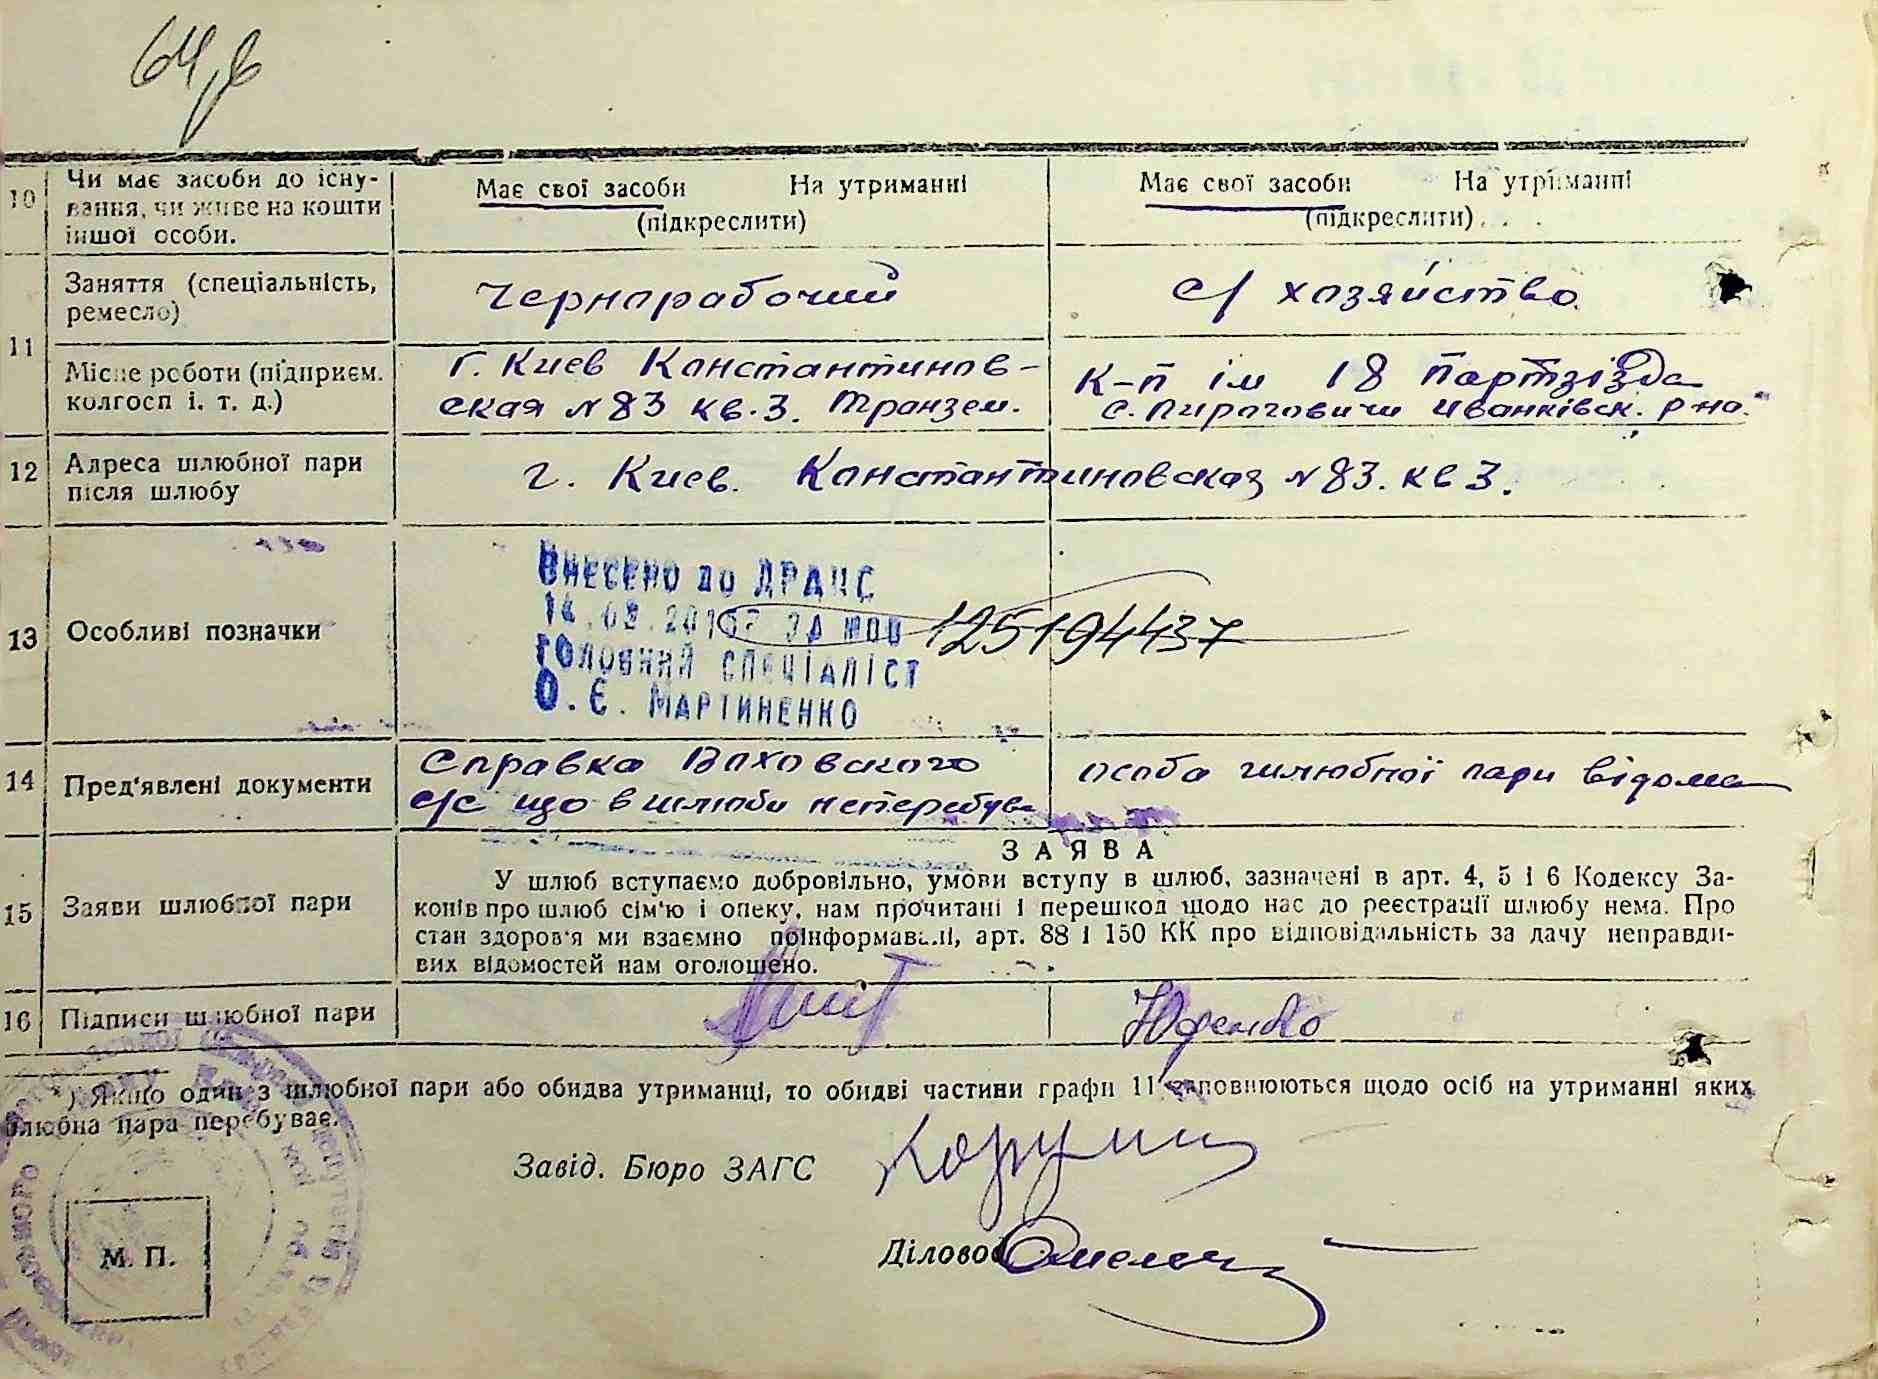 10 Чи має засоби до існу-
вання, чи живе на кошти
іншої особи.
Має свої засоби На утриманні
(підкреслити)
Має свої засоби На утриманні
(підкреслити)
11 Заняття (спеціальність,
ремесло)
Чернорабочий
с/ хозяйство
Місце роботи (підприєм.
колгосп і. т. д.)
г. Киев Константинов-
ская N 83 кв. 3. Транзем.
К-п ім 18 Партзізда
с. Пироговичи Иванківск. р-на.
12 Адреса шлюбної пари
після шлюбу
г. Киев. Константиновская N 83. кв 3.
13 Особливі позначки
Внесено до ДРАЦС
головний спеціаліст
О. Є. Мартиненко
125194437
14 Пред'явлені документи
Справка Ваховского
с/с що в шлюби неперебува
особа шлюбної пари відома
15 Заяви шлюбної пари
ЗАЯВА
У шлюб вступаємо добровільно, умови вступу в шлюб, зазначені в арт. 4, 5 і 6 Кодексу За-
конів про шлюб сім'ю і опеку, нам прочитані і перешкод щодо нас до реєстрації шлюбу нема. Про
стан здоров'я ми взаємно поінформавані, арт. 88 і 150 КК про відповідальність за дачу неправди-
вих відомостей нам оголошено.
16 Підписи шлюбної пари
Юфенко
*) Якщо один з шлюбної пари або обидва утриманці, то обидві частини графи 11 заповнюються щодо осіб на утриманні яких
шлюбна пара перебуває.
Завід. Бюро ЗАГС
Діловод
М. П.